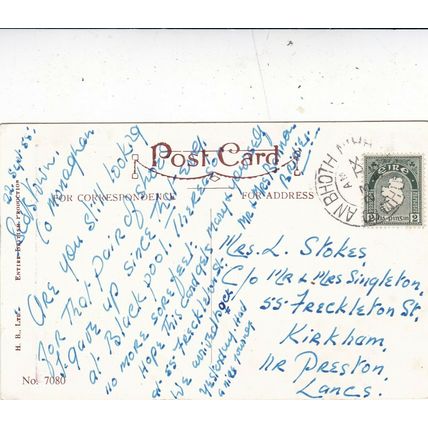 Post Card
FOR CORRESPONDENCE
FOR ADDRESS
ENTIRE BRITISH PRODUCTION
H. B., Ltd.
No. 7080
22. Sept. 55.
Co Monaghan
Are you still looking
for that pair of shoes
I gave up since
at Blackpool.
no more sore feet.
Hope this card gets
at 55 Freckleton St.
We arrived
yesterday, had
a nice journey
Mrs. L. Stokes,
C/o Mr & Mrs Singleton,
55 Freckleton St.
Kirkham,
nr Preston,
Lancs.
AN BHOTH
AM
ÉIRE
2
2